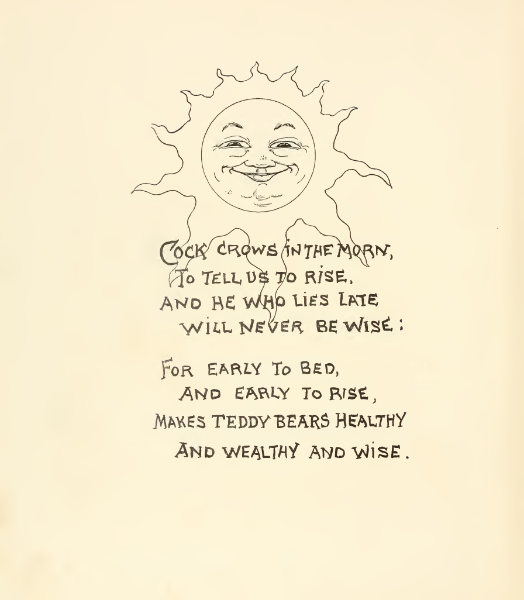 Cock crows in the morn,
To tell us to rise,
And he who lies late
Will never be wise:
For early to bed,
And early to rise,
Makes Teddy Bears healthy
And wealthy and wise.